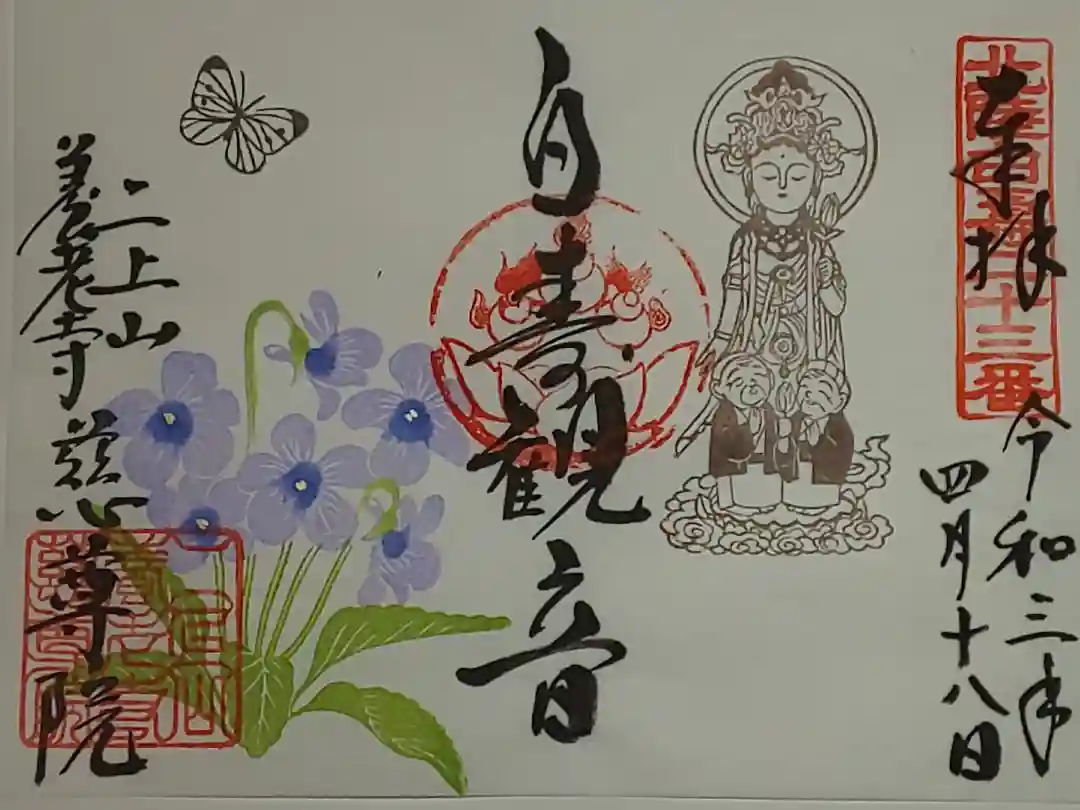 北陸白壽三十三番
奉拝
令和三年
四月十八日
白寿観音
二上山
養老寺慈尊院